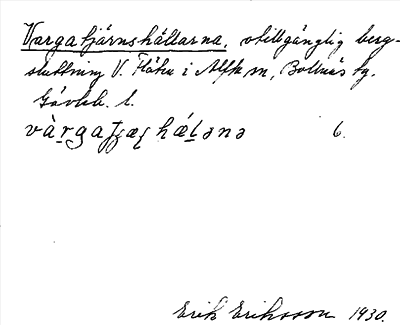 Vargatjärnshällarna, otillgänglig berg-
sluttning V. Flåten i Alfta sn, Bollnäs tg.
Gävleb. l.
vàrga hæ̀ḷənə 6.
Erik Eriksson 1930.